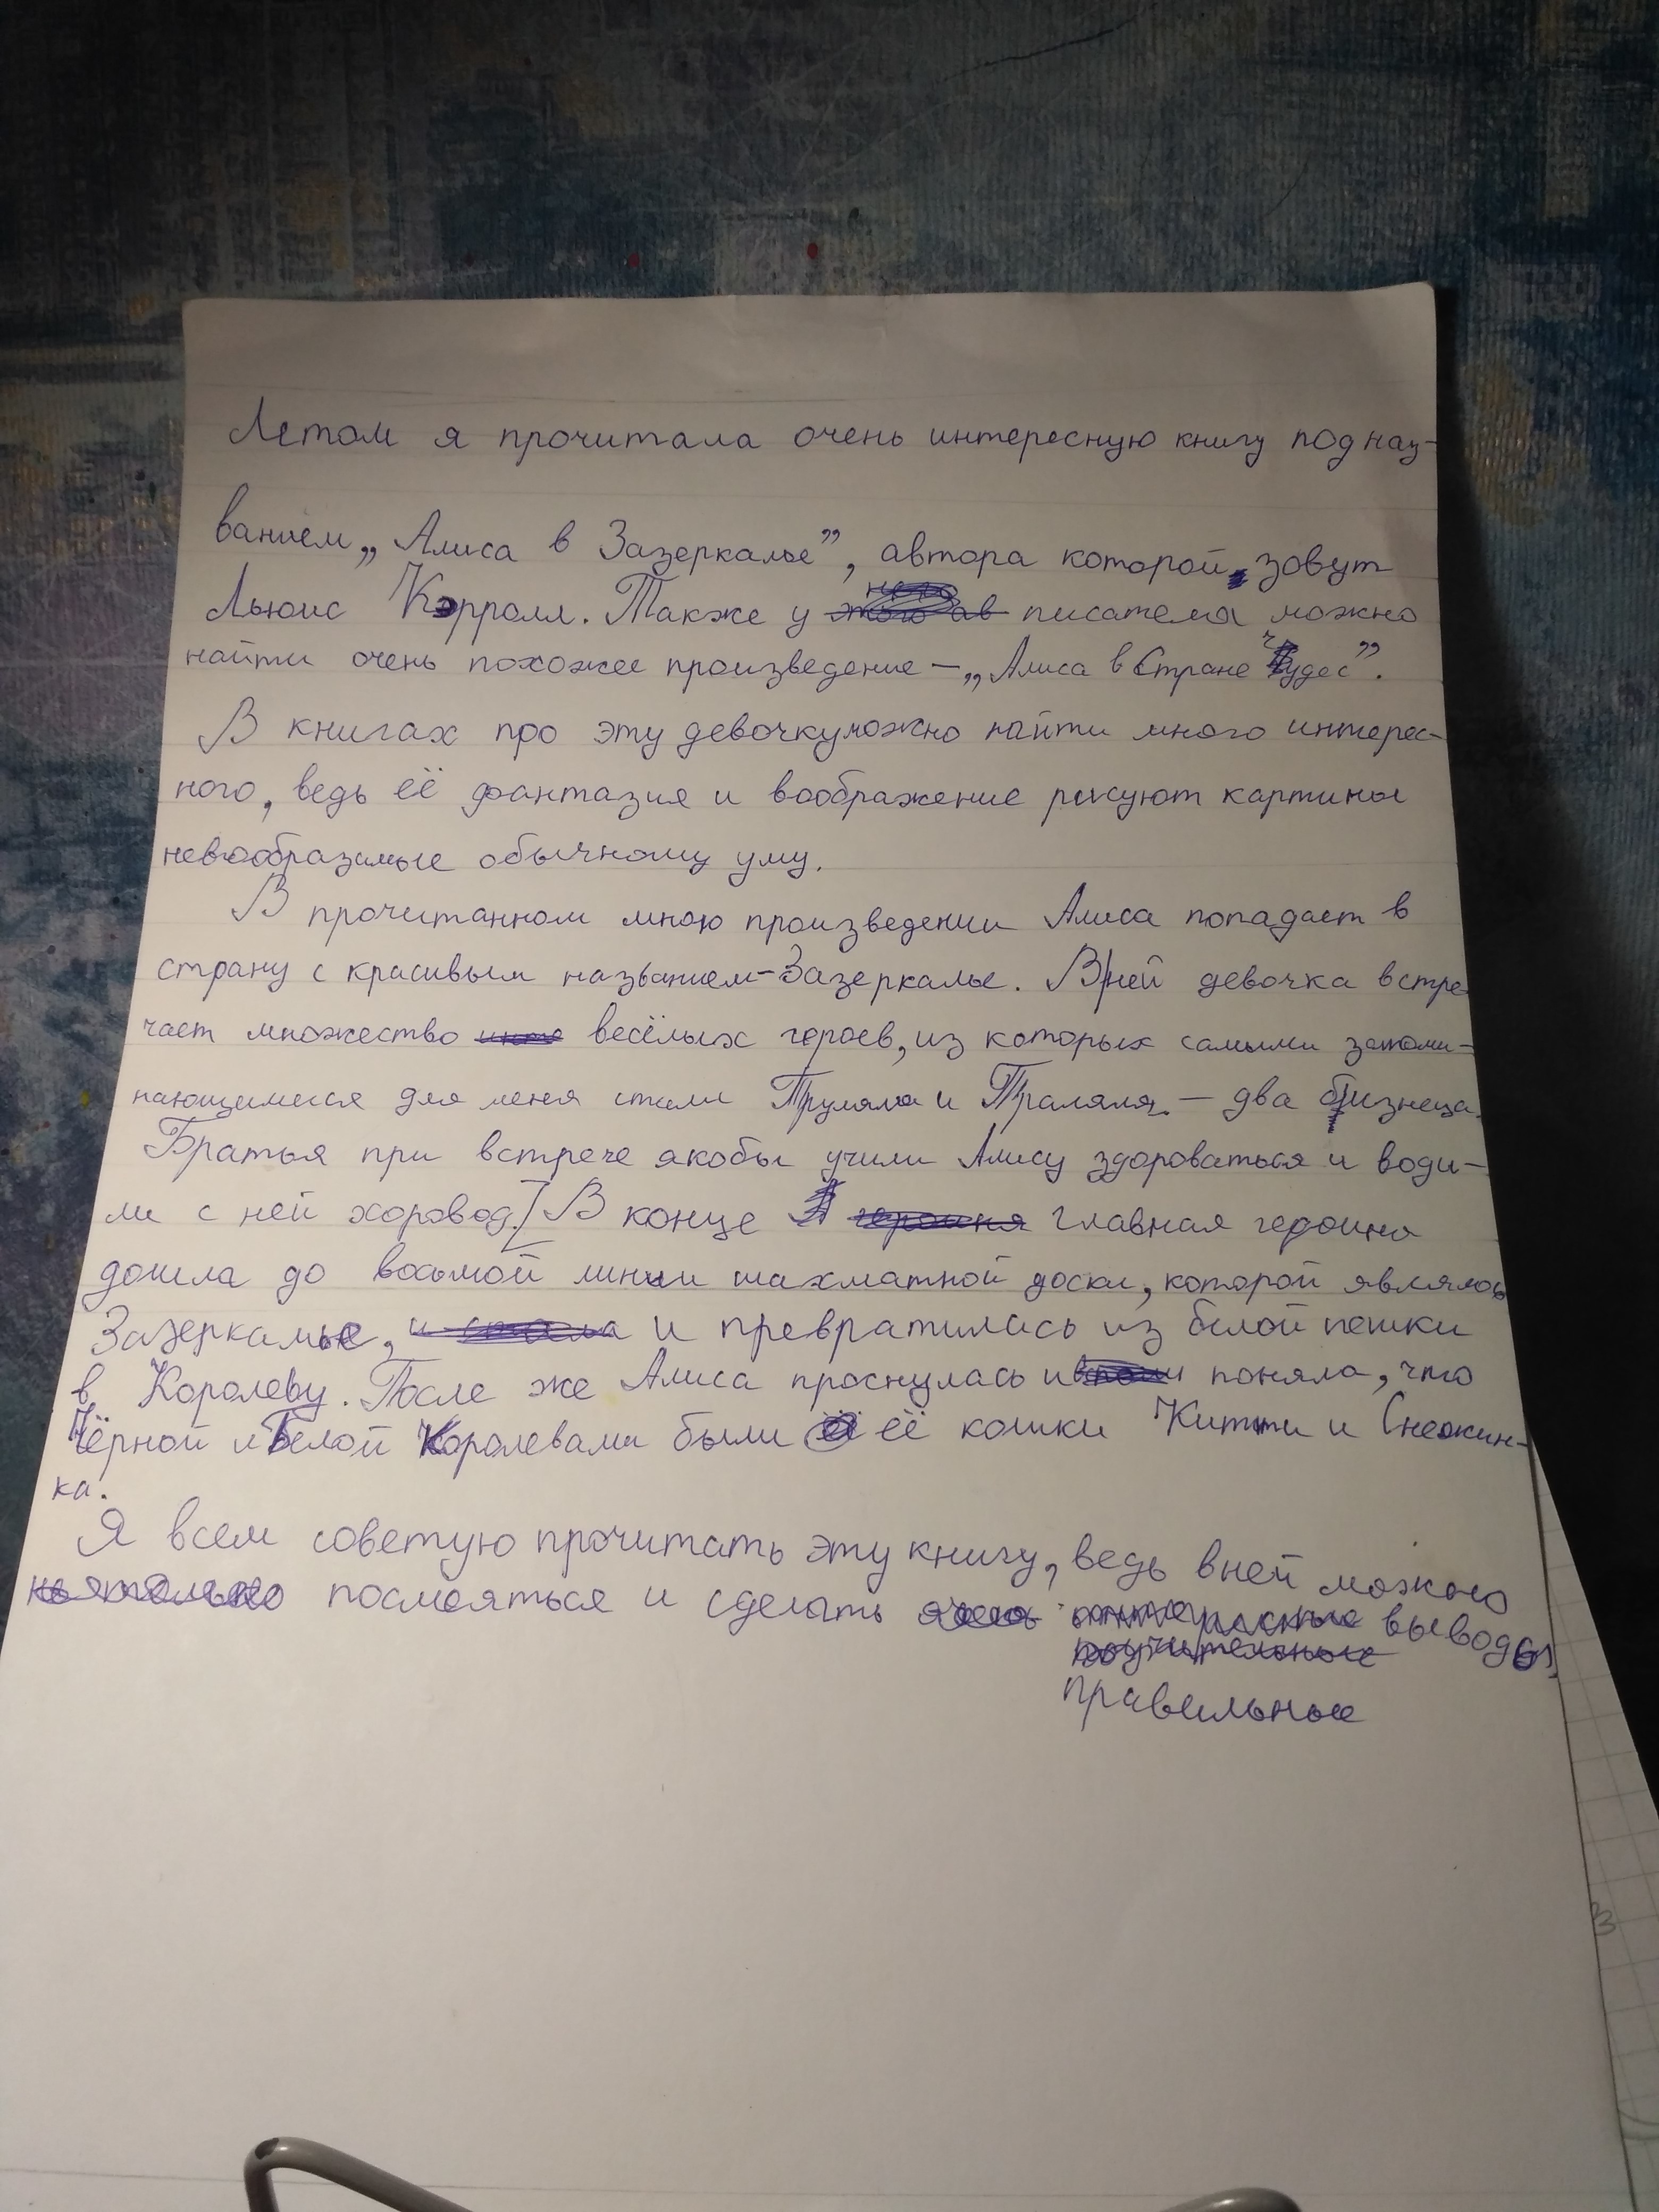 Летом я прочитала очень интересную книгу под наз-
ванием „Алиса в Зазеркалье”, автора которой зовут
Льюис Кэрролл. Также у писателя можно
найти очень похожее произведение – „Алиса в Стране Чудес”.
В книгах про эту девочку можно найти много интерес-
ного, ведь её фантазия и воображение рисуют картины
невообразимые обычному уму.
В прочитанном мною произведении Алиса попадает в
страну с красивым названием - Зазеркалье. В ней девочка встре-
чает множество весёлых героев, из которых самыми запоми-
нающимися для меня стали Труляля и Траляля – два близнеца.
Братья при встрече якобы учили Алису здороваться и води-
ли с ней хоровод. [ В конце главная героиня
дошла до восьмой линии шахматной доски, которой являлось
Зазеркалье, и превратилась из белой пешки
в Королеву. После же Алиса проснулась и поняла, что
Чёрной и Белой Королевами были её кошки Китти и Снежин-
ка.
Я всем советую прочитать эту книгу, ведь в ней можно
посмеяться и сделать выводы
правильные